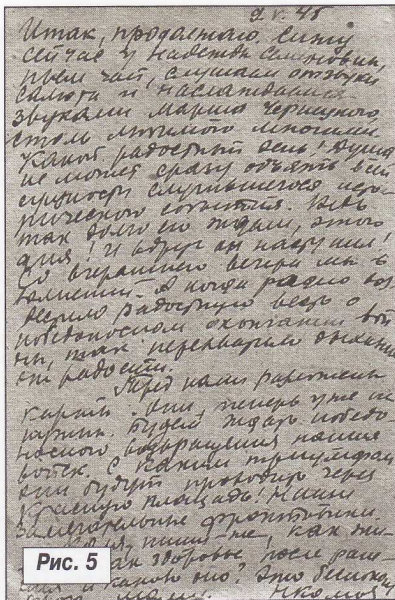 9 V. 45
Итак, продолжаю. Сижу
сейчас у Надежды Семеновны,
пьем чай, слушаем отзвуки
салюта и наслаждаемся
звуками марша Чернецкого,
столь любимого многими.
Какой радостный день! Душа
не может сразу объять всей
сущности случившегося исто-
рического события. Ведь
так долго его ждали, этого
дня! И вдруг он наступил!
Со вчерашнего вечера мы в
волнении. А когда радио воз-
вестило радостную весть о
победоносном окончании вой-
ны, так перехватило дыхание
от радости.
Перед нами разложены
карты. Они теперь уже не
нужны. Будем ждать победо-
носного возвращения наших
войск. С каким триумфом
они будут проходить через
Красную площадь! Наши
замечательные фронтовики.
пиши мне, как
как здоровье после
и каково оно? Это
Рис. 5